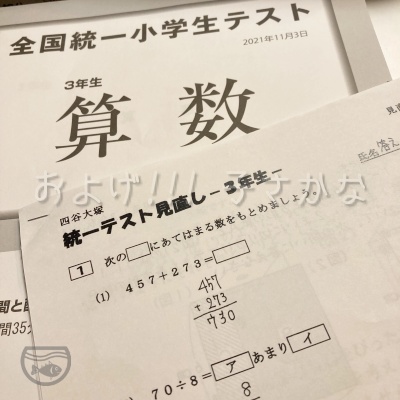 全国統一小学生テスト
2021年11月3日
3年生
算数
およげ!!! 子さかな
見直
氏名
答え
四谷大塚
統一テスト見直し－3年生－
1 次の□にあてはまる数をもとめましょう。
(1) 457＋273＝□
457
+ 273
730
70÷8＝ア あまり イ
8
間35分